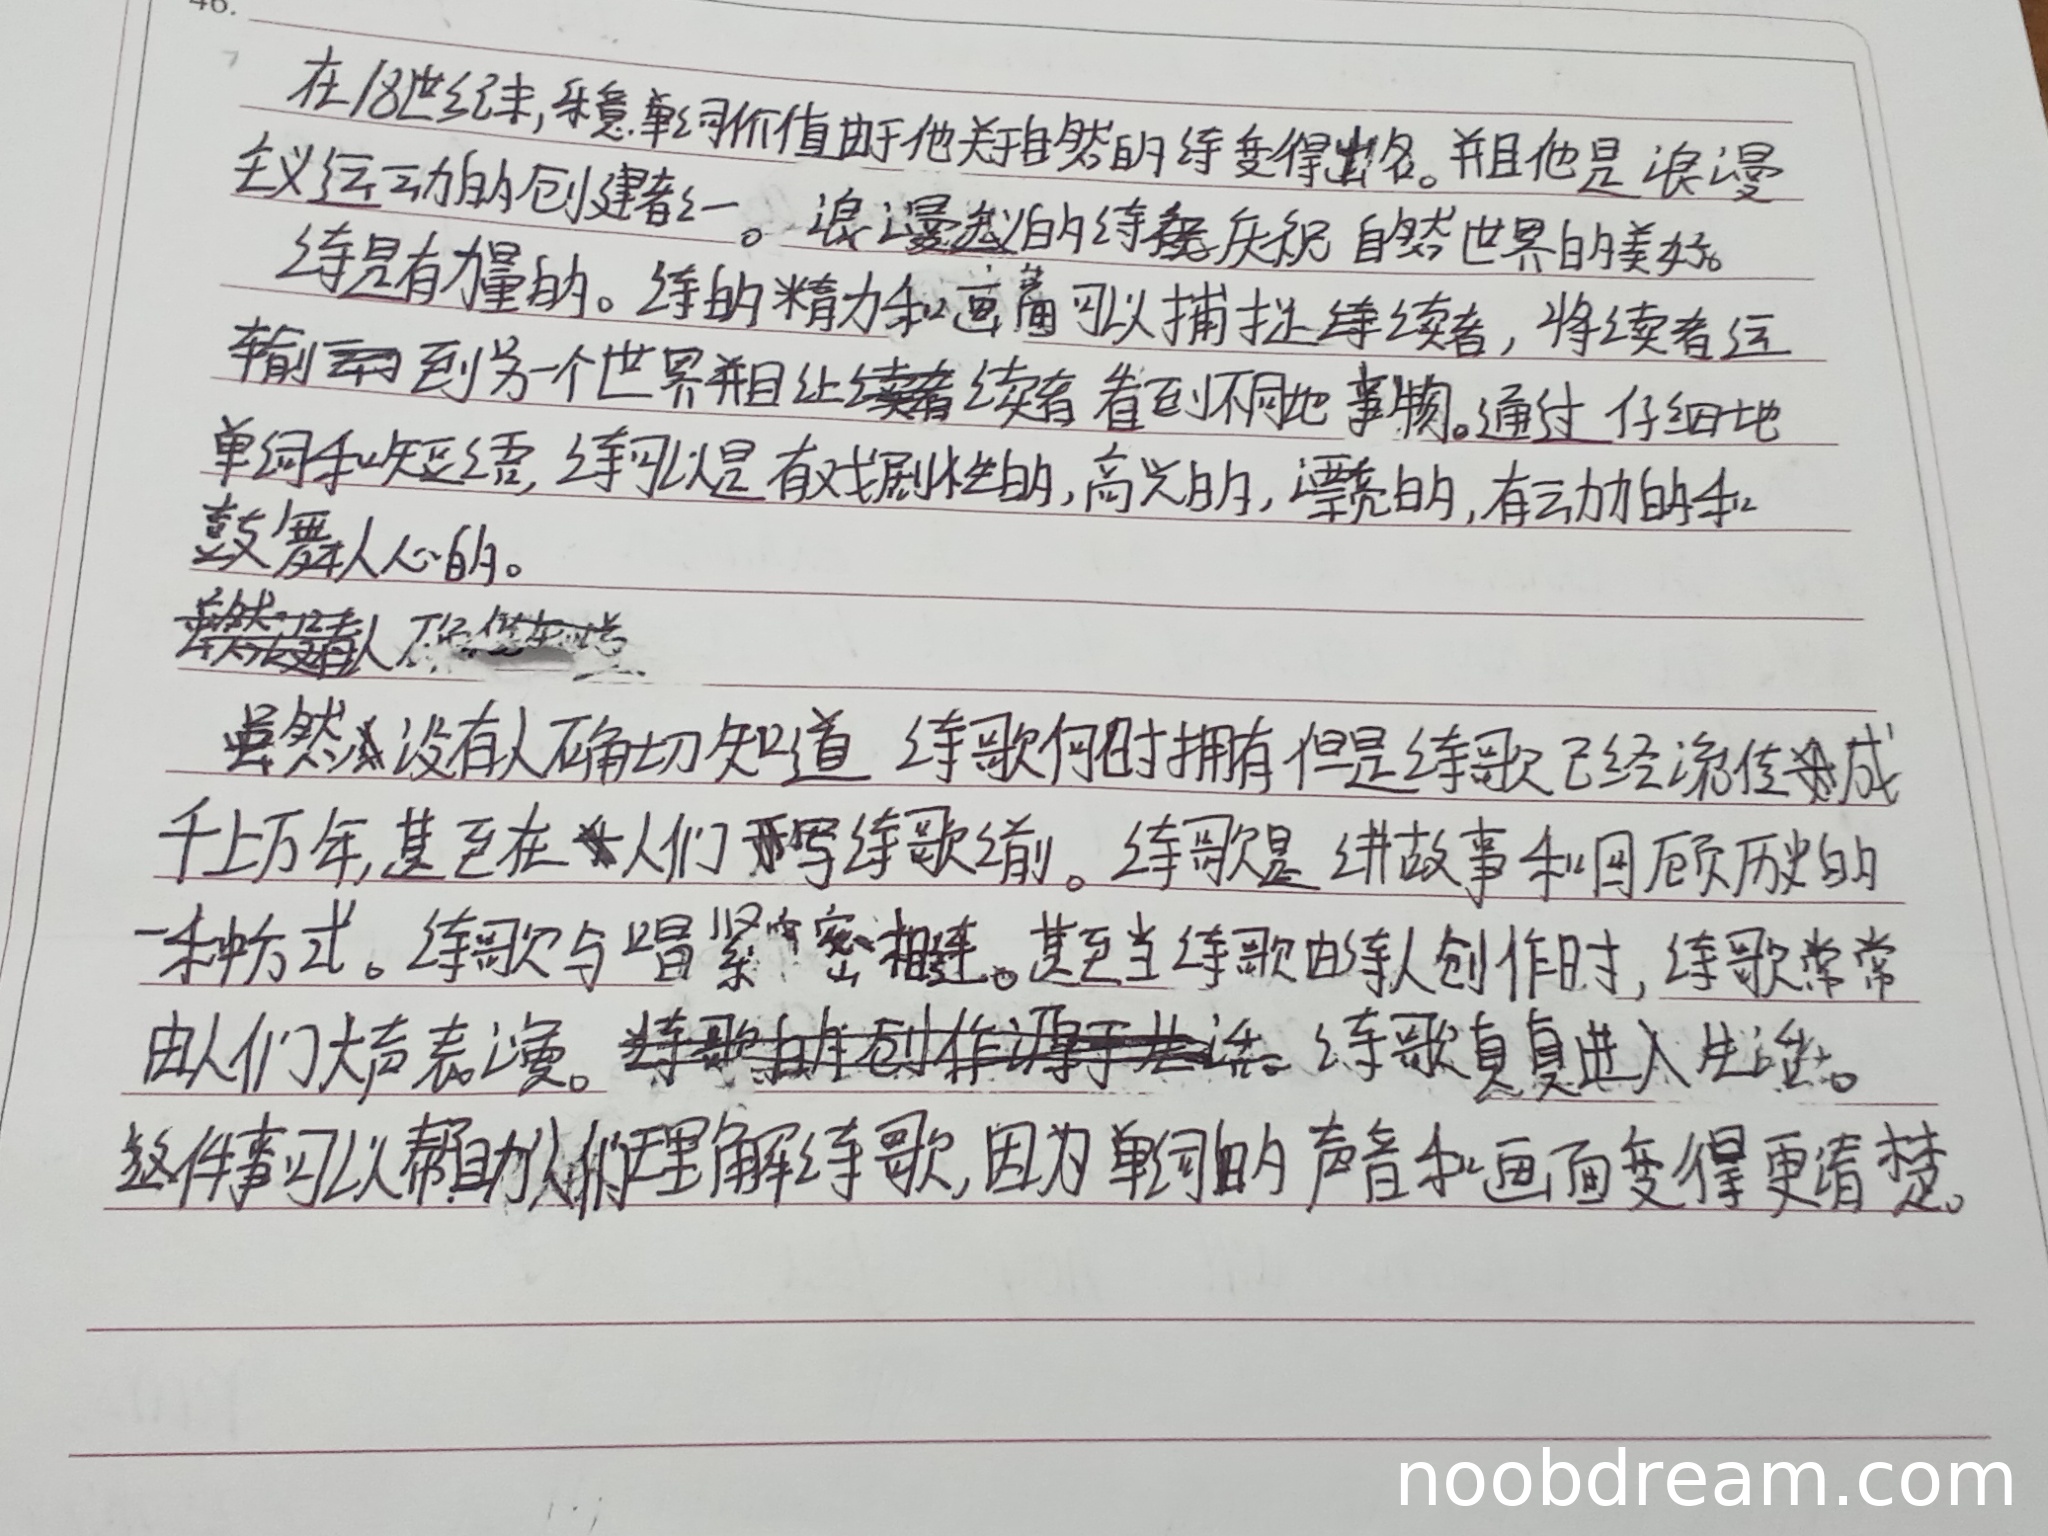 46.
在18世纪末,乐意.单词价值由于他关于自然的诗变得出名。并且他是浪漫
主义运动的创建者之一。浪漫主义的诗庆祝自然世界的美好。
诗是有力量的。诗的精力和画面可以捕捉读者,将读者运
输到另一个世界并且让读者看到不同地事物。通过仔细地
单词和短语,诗可以是有戏剧性的,高兴的,漂亮的,有动力的和
鼓舞人心的。
虽然没有人
虽然没有人确切知道诗歌何时拥有但是诗歌已经流传成
千上万年,甚至在人们写诗歌前。诗歌是讲故事和回顾历史的
一种方式。诗歌与唱紧密相连。甚至当诗歌由诗人创作时,诗歌常常
由人们大声表漫。诗歌的创作源于生活。诗歌真真进入生活。
这件事可以帮助人们理解诗歌,因为单词的声音和画面变得更清楚。
noobdream.com